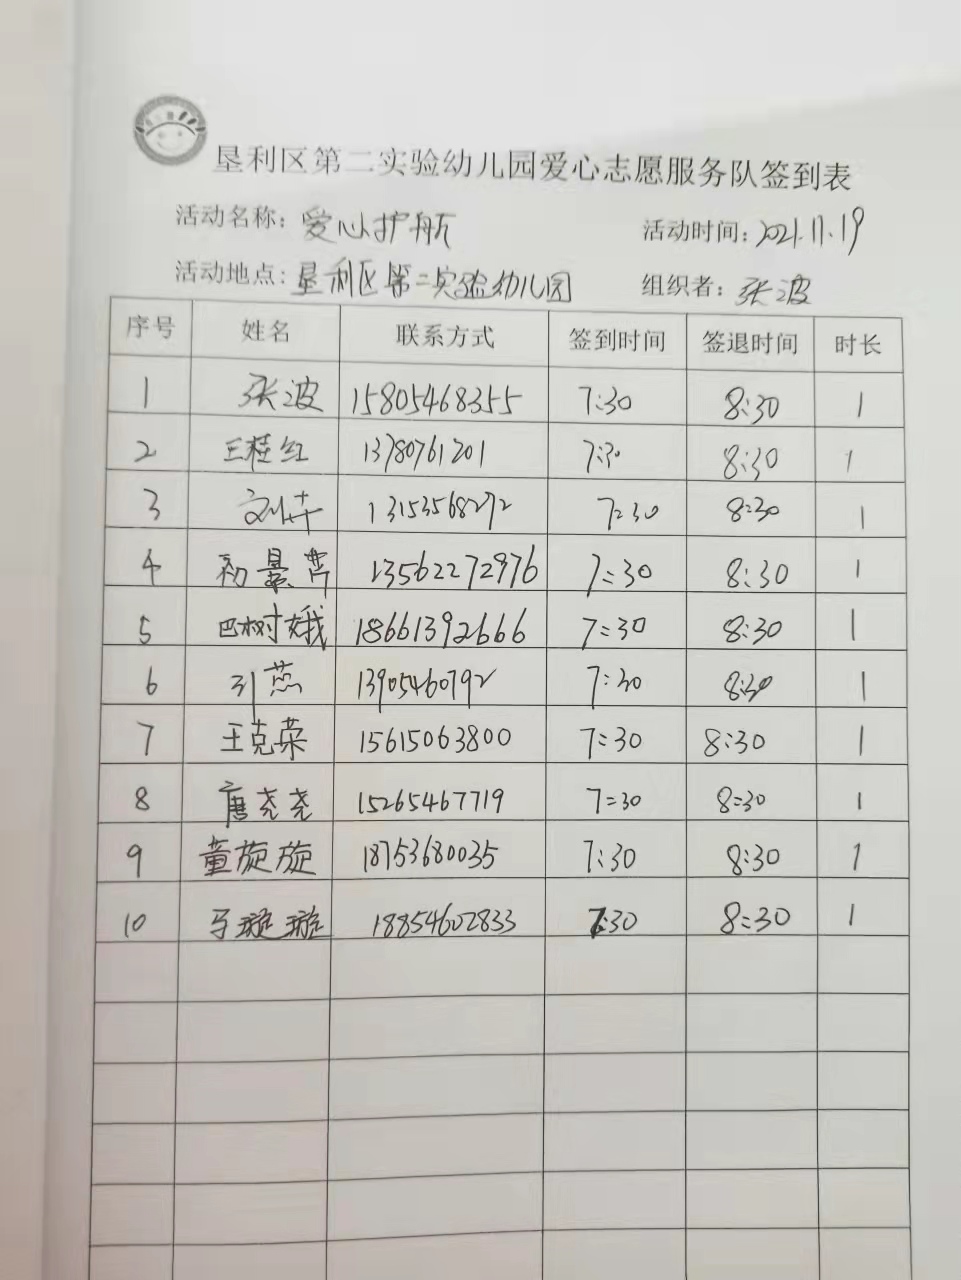 垦利区第二实验幼儿园爱心志愿服务队签到表
活动名称：爱心护航 活动时间：2021.11.19
活动地点：垦利区第二实验幼儿园 组织者：张波
序号 姓名 联系方式 签到时间 签退时间 时长
1 张波 15805468355 7:30 8:30 1
2 王桂红 13780761201 7:30 8:30 1
3 刘卉 13153568272 7:30 8:30 1
4 初景 13562272976 7:30 8:30 1
5 巴树娥 18661392666 7:30 8:30 1
6 引燕 13905460792 7:30 8:30 1
7 王克荣 15615063800 7:30 8:30 1
8 唐尧尧 15265467719 7:30 8:30 1
9 董旋旋 18753680035 7:30 8:30 1
10 马璇璇 18854602833 7:30 8:30 1